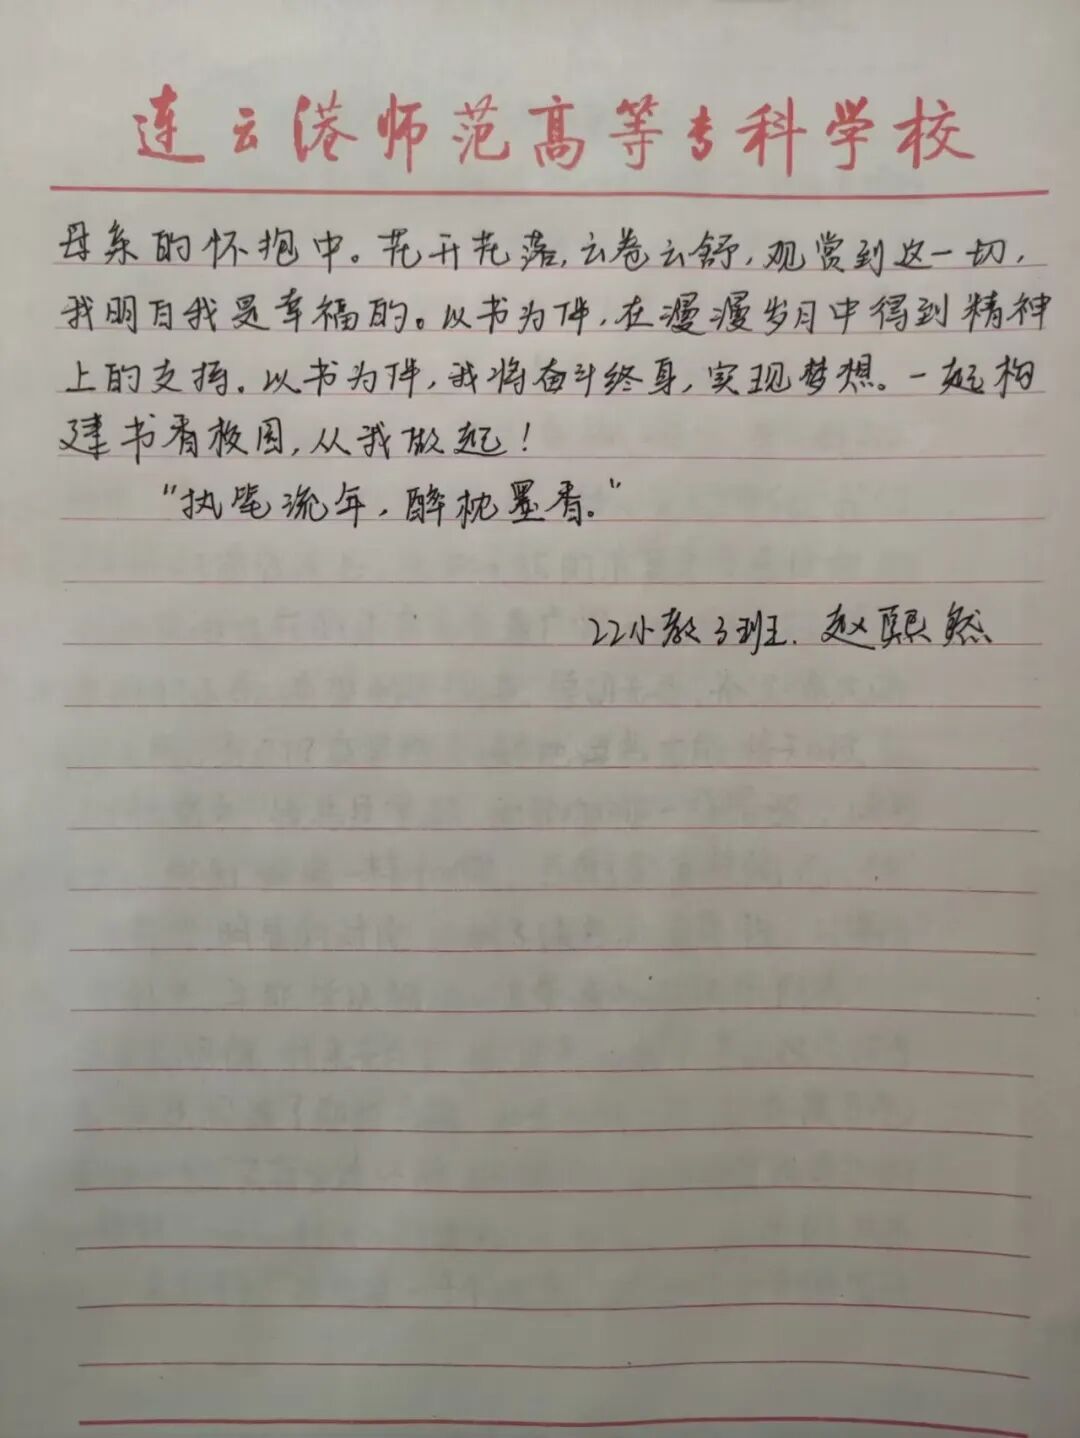 连云港师范高等专科学校
母亲的怀抱中。花开花落,云卷云舒,观赏到这一切,
我明白我是幸福的。以书为伴,在漫漫岁月中得到精神
上的支持。以书为伴,我将奋斗终身,实现梦想。一起构
建书香校园,从我做起!
“执笔流年,醉枕墨香。”
22小教3班.赵熙然